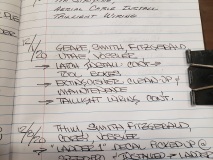 AERIAL CABLE INSTALL
TAILLIGHT WIRING
12/1/20 GEARY, SMITH, FITZGERALD,
UTKE, VOSSLER
→ LATCH INSTALL CONT.→
TOOL BOXES
→ EXTINGUISHER CLEAN UP &
MAINTENANCE
→ TAILLIGHT WIRING CONT.
12/8/20 THUL, SMITH, FITZGERALD,
VOSSLER
→ "LADDER 1" DECAL PICKED UP @
INSTALLED - LADDER